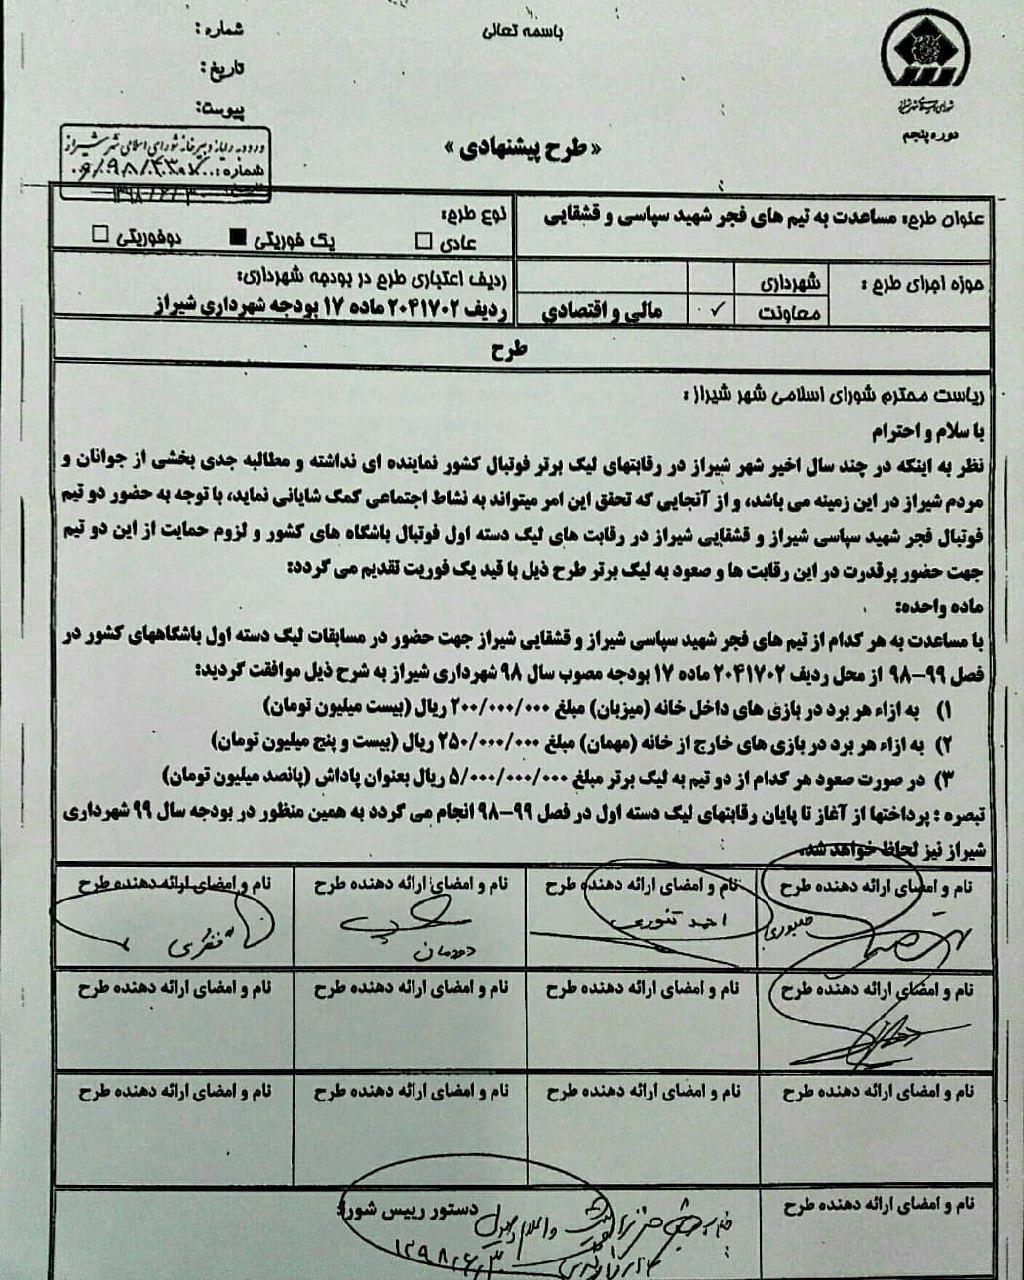 باسمه تعالی
شماره :
تاریخ :
پیوست:
شورای اسلامی شهر شیراز
دوره پنجم
« طرح پیشنهادی »
ورود به رایانه دبیرخانه شورای اسلامی شهر شیراز
شماره:
عنوان طرح: مساعدت به تیم های فجر شهید سپاسی و قشقایی
نوع طرح:
عادی □ یک فوریتی ■ دوفوریتی □
حوزه اجرای طرح :
شهرداری
معاونت ✓ مالی و اقتصادی
ردیف اعتباری طرح در بودجه شهرداری:
ردیف ۲۰۴۱۷۰۲ ماده ۱۷ بودجه شهرداری شیراز
طرح
ریاست محترم شورای اسلامی شهر شیراز :
با سلام و احترام
نظر به اینکه در چند سال اخیر شهر شیراز در رقابتهای لیگ برتر فوتبال کشور نماینده ای نداشته و مطالبه جدی بخشی از جوانان و
مردم شیراز در این زمینه می باشد، و از آنجایی که تحقق این امر میتواند به نشاط اجتماعی کمک شایانی نماید، با توجه به حضور دو تیم
فوتبال فجر شهید سپاسی شیراز و قشقایی شیراز در رقابت های لیگ دسته اول فوتبال باشگاه های کشور و لزوم حمایت از این دو تیم
جهت حضور پرقدرت در این رقابت ها و صعود به لیگ برتر طرح ذیل با قید یک فوریت تقدیم می گردد:
ماده واحده:
با مساعدت به هر کدام از تیم های فجر شهید سپاسی شیراز و قشقایی شیراز جهت حضور در مسابقات لیگ دسته اول باشگاههای کشور در
فصل ۹۹-۹۸ از محل ردیف ۲۰۴۱۷۰۲ ماده ۱۷ بودجه مصوب سال ۹۸ شهرداری شیراز به شرح ذیل موافقت گردید:
۱) به ازاء هر برد در بازی های داخل خانه (میزبان) مبلغ ۲۰۰/۰۰۰/۰۰۰ ریال (بیست میلیون تومان)
۲) به ازاء هر برد در بازی های خارج از خانه (مهمان) مبلغ ۲۵۰/۰۰۰/۰۰۰ ریال (بیست و پنج میلیون تومان)
۳) در صورت صعود هر کدام از دو تیم به لیگ برتر مبلغ ۵/۰۰۰/۰۰۰/۰۰۰ ریال بعنوان پاداش (پانصد میلیون تومان)
تبصره : پرداختها از آغاز تا پایان رقابتهای لیگ دسته اول در فصل ۹۹-۹۸ انجام می گردد به همین منظور در بودجه سال ۹۹ شهرداری
شیراز نیز لحاظ خواهد شد.
نام و امضای ارائه دهنده طرح نام و امضای ارائه دهنده طرح نام و امضای ارائه دهنده طرح نام و امضای ارائه دهنده طرح
احمد تنوری دودمان
نام و امضای ارائه دهنده طرح نام و امضای ارائه دهنده طرح نام و امضای ارائه دهنده طرح نام و امضای ارائه دهنده طرح
نام و امضای ارائه دهنده طرح نام و امضای ارائه دهنده طرح نام و امضای ارائه دهنده طرح نام و امضای ارائه دهنده طرح
نام و امضای ارائه دهنده طرح
دستور رییس شورا: